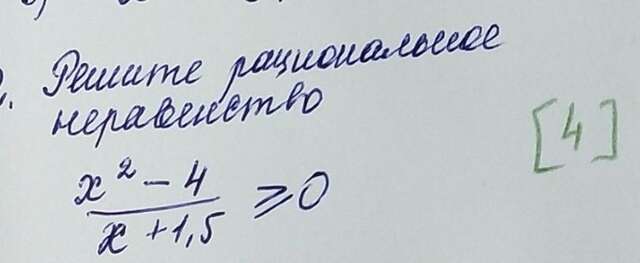 Решите рациональное
неравенство
[4]
x² - 4
x + 1,5
≥ 0